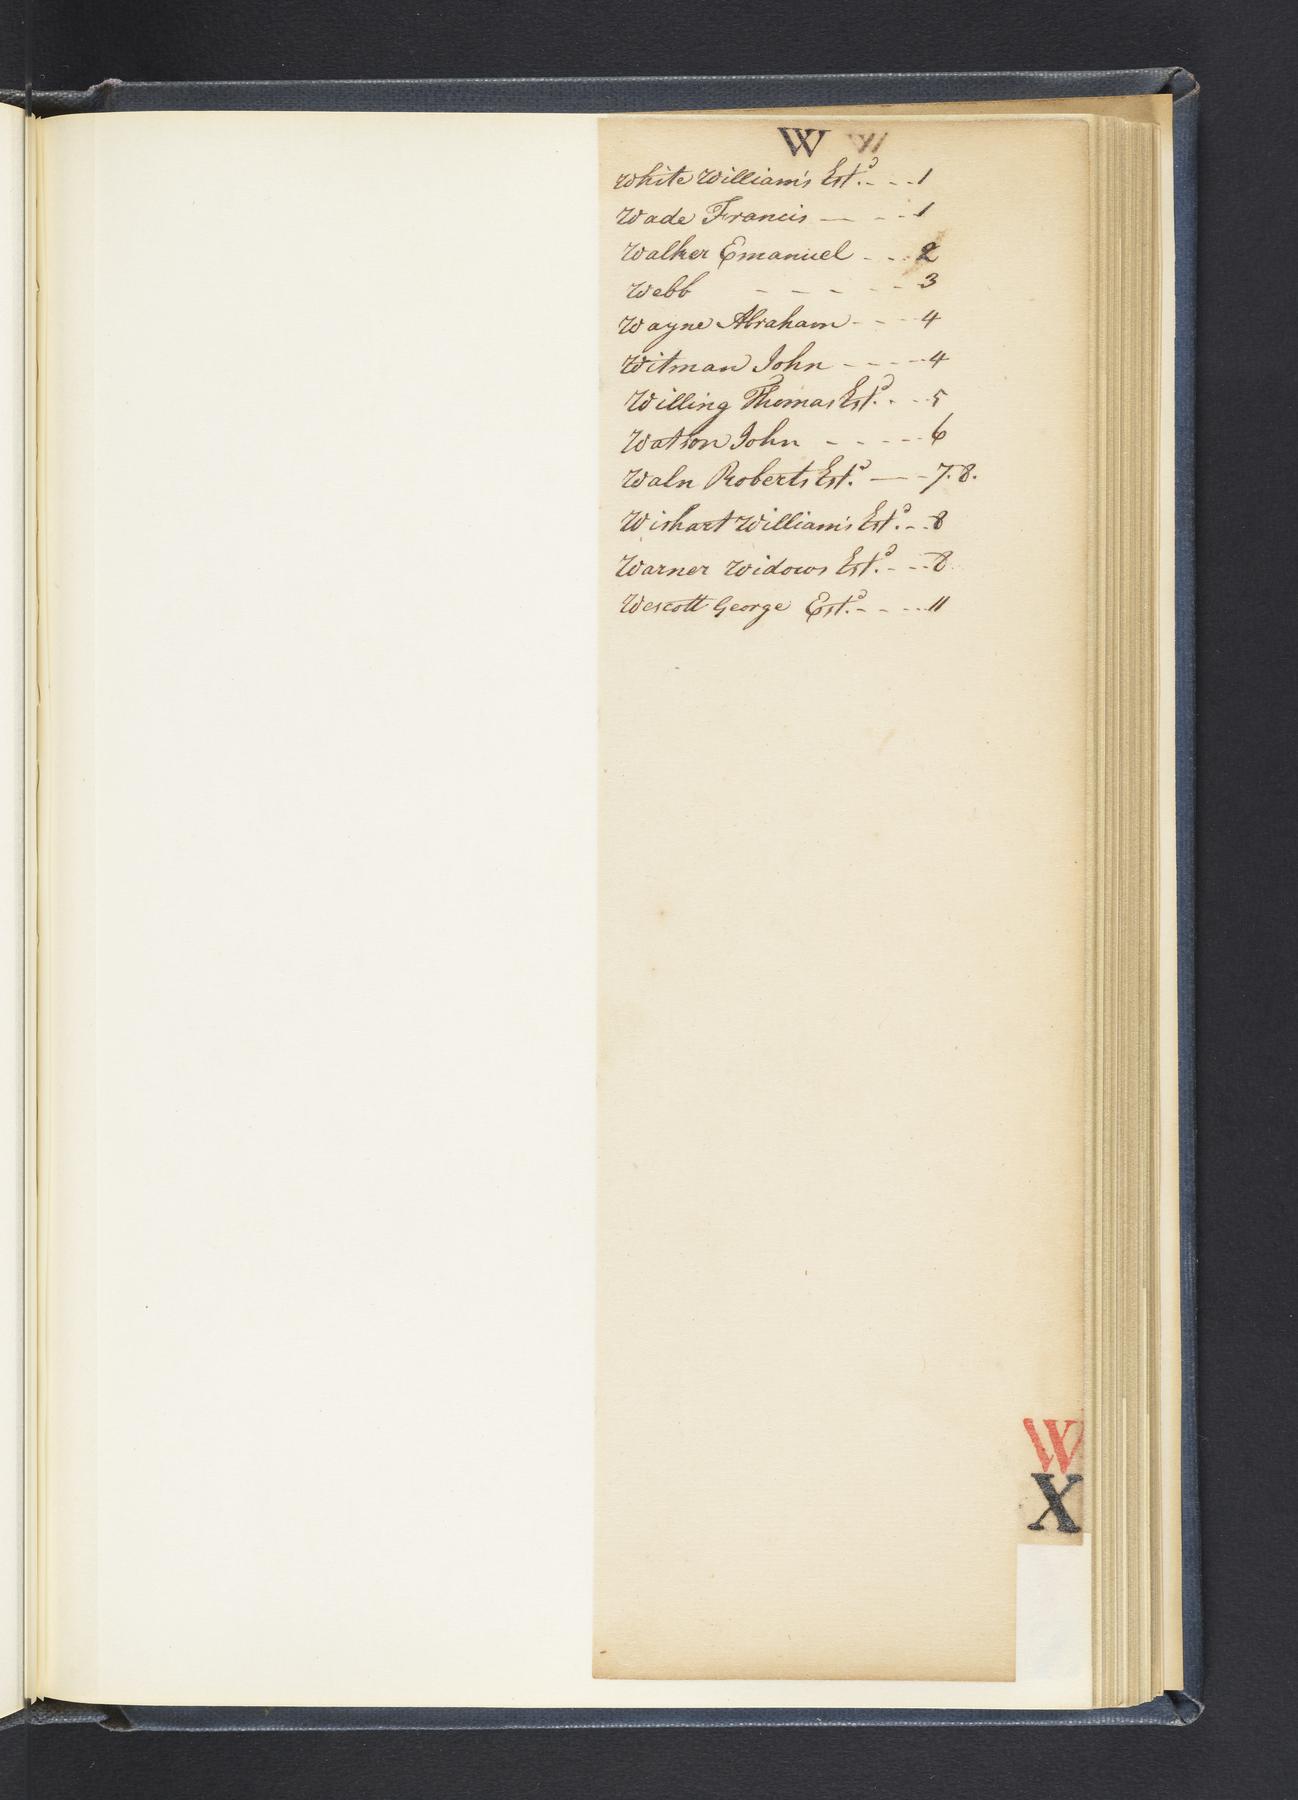 W W
White William's Est.ᵈ - - - 1
Wade Francis — - - 1
Walker Emanuel - - - 2
Webb - - - - - - 3
Wayne Abraham - - - 4
Witman John - - - - 4
Willing Thomas Est.ᵈ - - - 5
Watson John - - - - - 6
Waln Roberts Est.ᵈ — - 7. 8.
Wishart William's Est.ᵈ - - 8
Warner Widows Est.ᵈ - - - 8
Wescott George Est.ᵈ - - - - 11
W
X